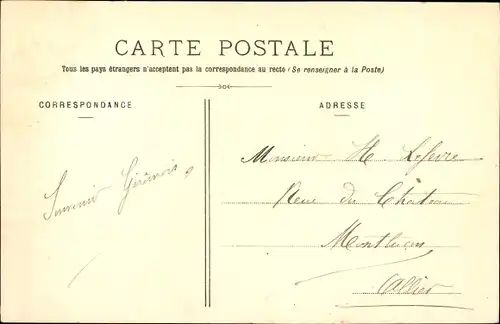 CARTE POSTALE
Tous les pays étrangers n'acceptent pas la correspondance au recto (Se renseigner à la Poste)
CORRESPONDANCE
ADRESSE
Souvenir
Monsieur H Lefevre
Rue du Château
Montluçon
Allier